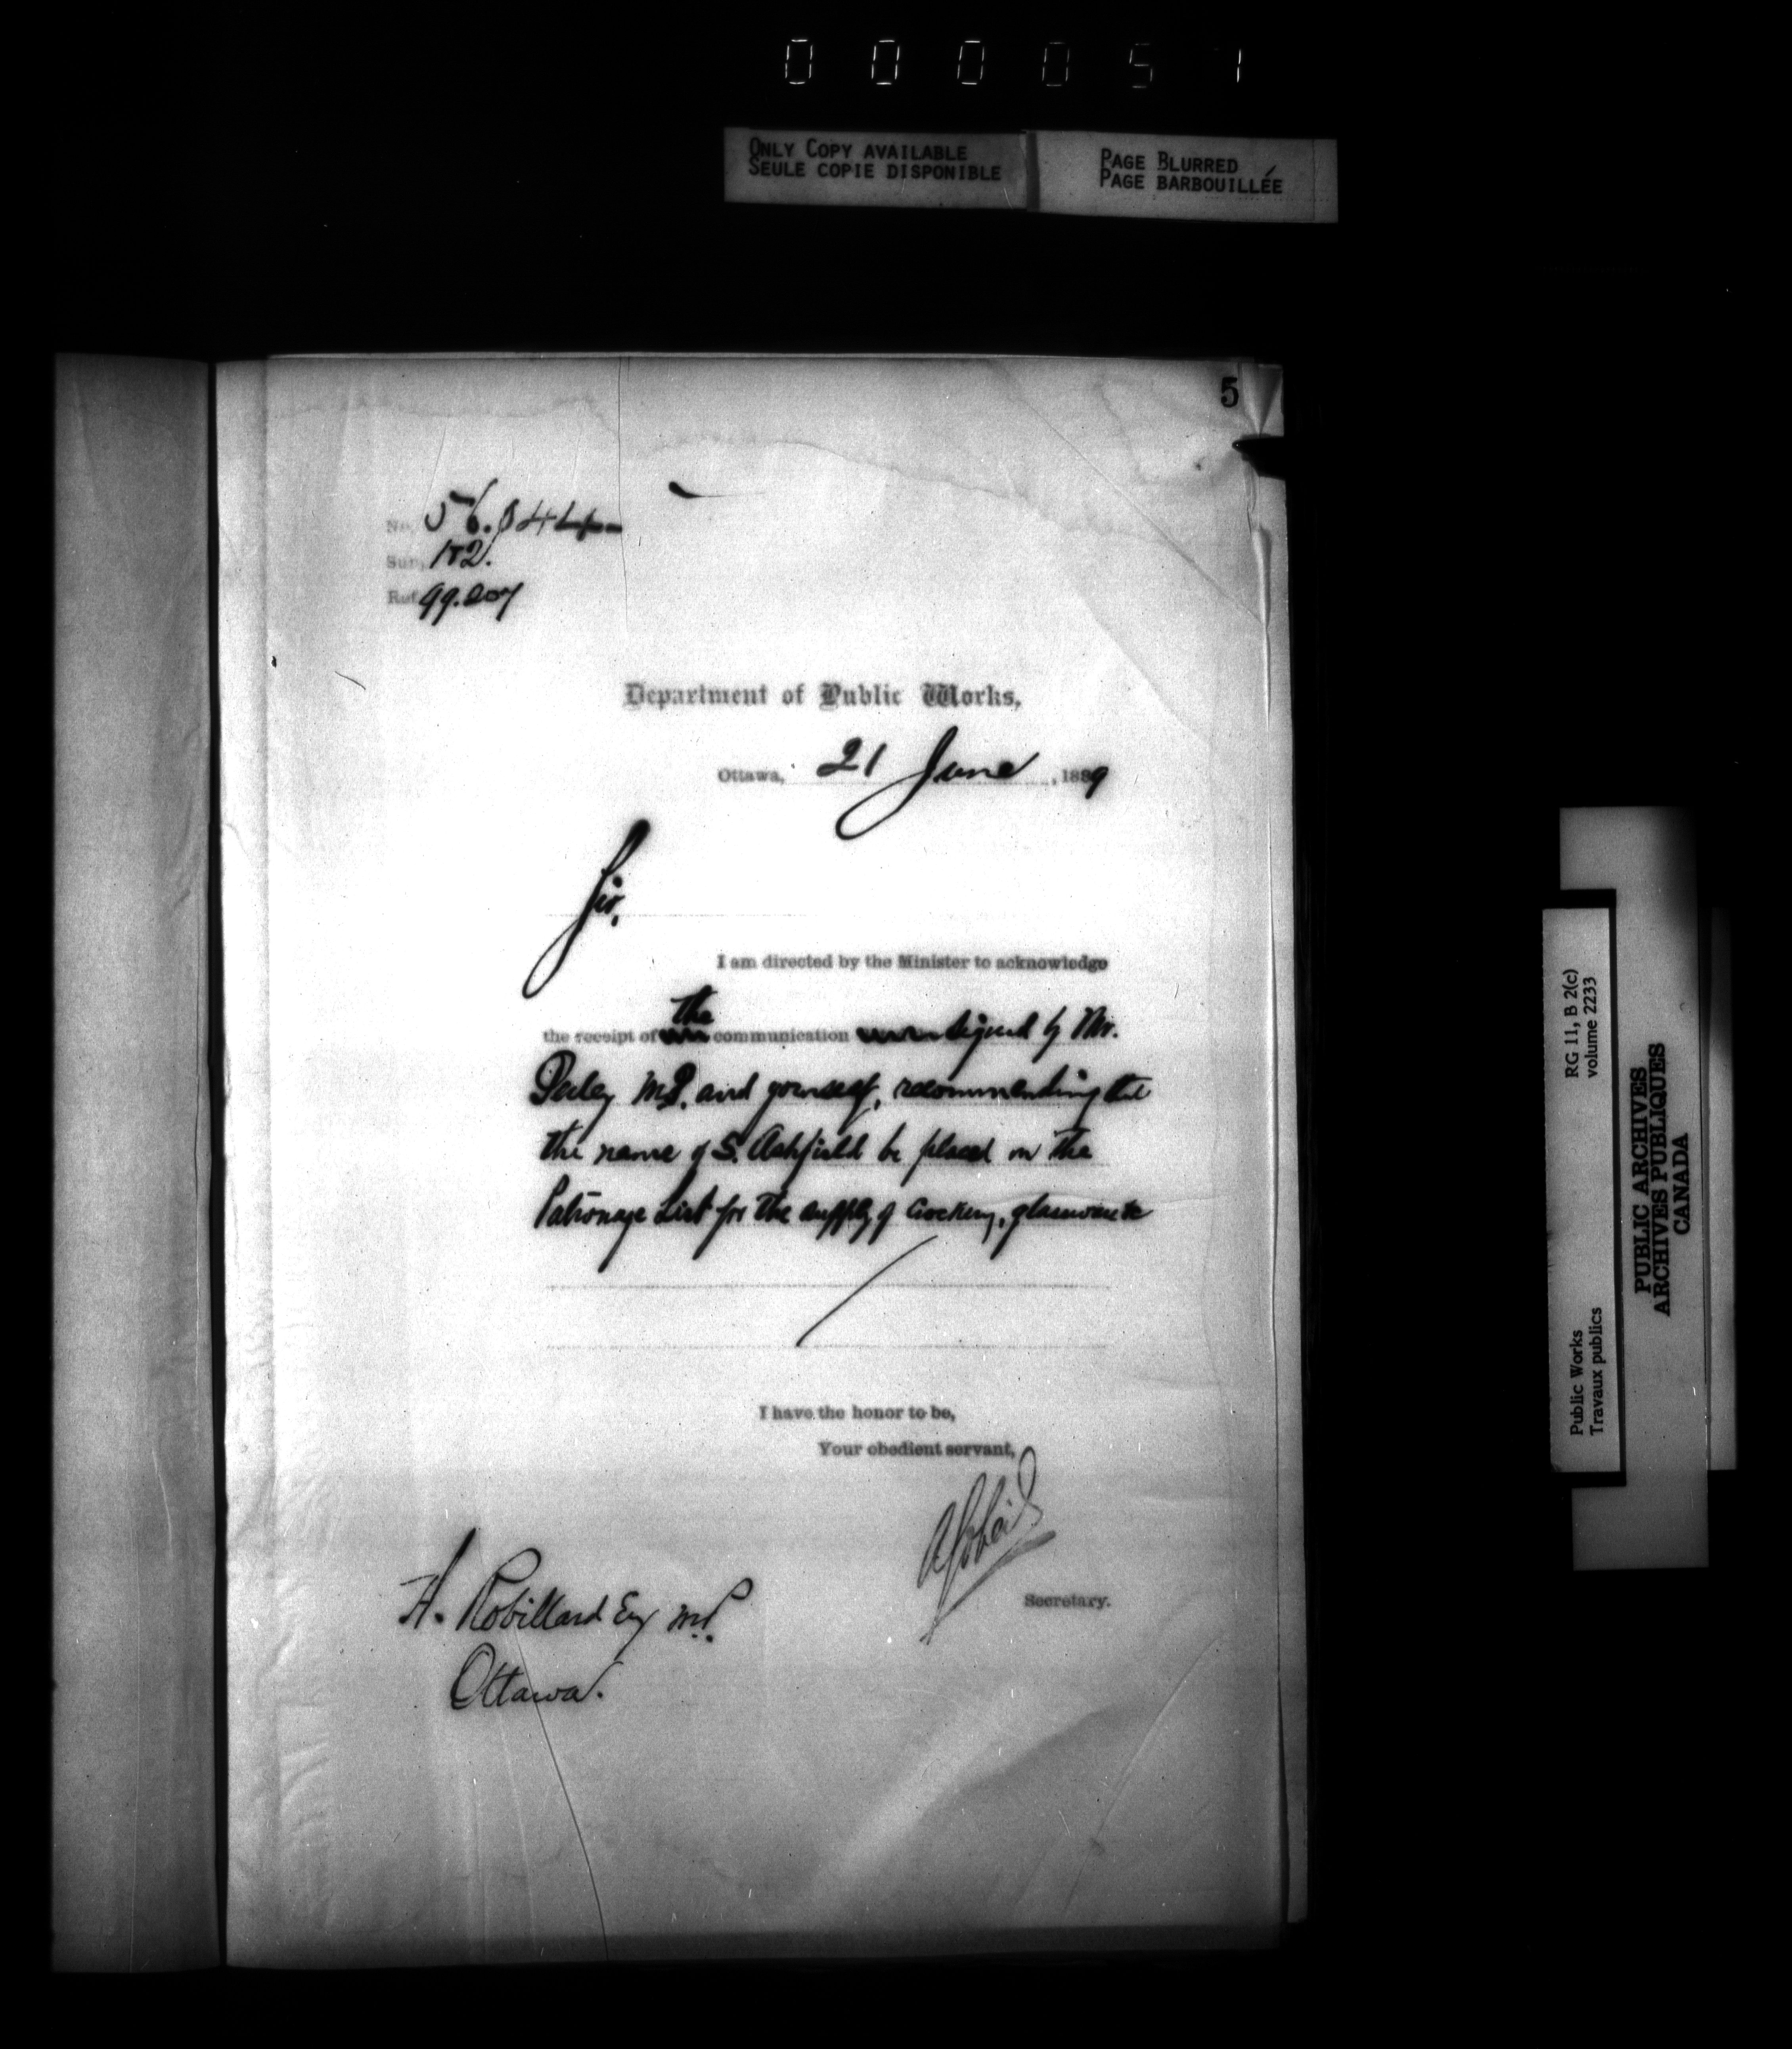 0 0 0 0 5 1
ONLY COPY AVAILABLE
SEULE COPIE DISPONIBLE
PAGE BLURRED
PAGE BARBOUILLÉE
5
No.
Sub. 182.
Ref. 99.207
Department of Public Works,
Ottawa, 21 June, 1889
Sir,
I am directed by the Minister to acknowledge
the receipt of the communication signed by Mr.
Perley M.P. and yourself, recommending that
the name of S. Ashfield be placed on the
Patronage List for the supply of Crockery, glassware &c
I have the honor to be,
Your obedient servant,
Secretary.
H. Robillard Esq M.P.
Ottawa.
RG 11, B 2(c)
volume 2233
Public Works
Travaux publics
PUBLIC ARCHIVES
ARCHIVES PUBLIQUES
CANADA